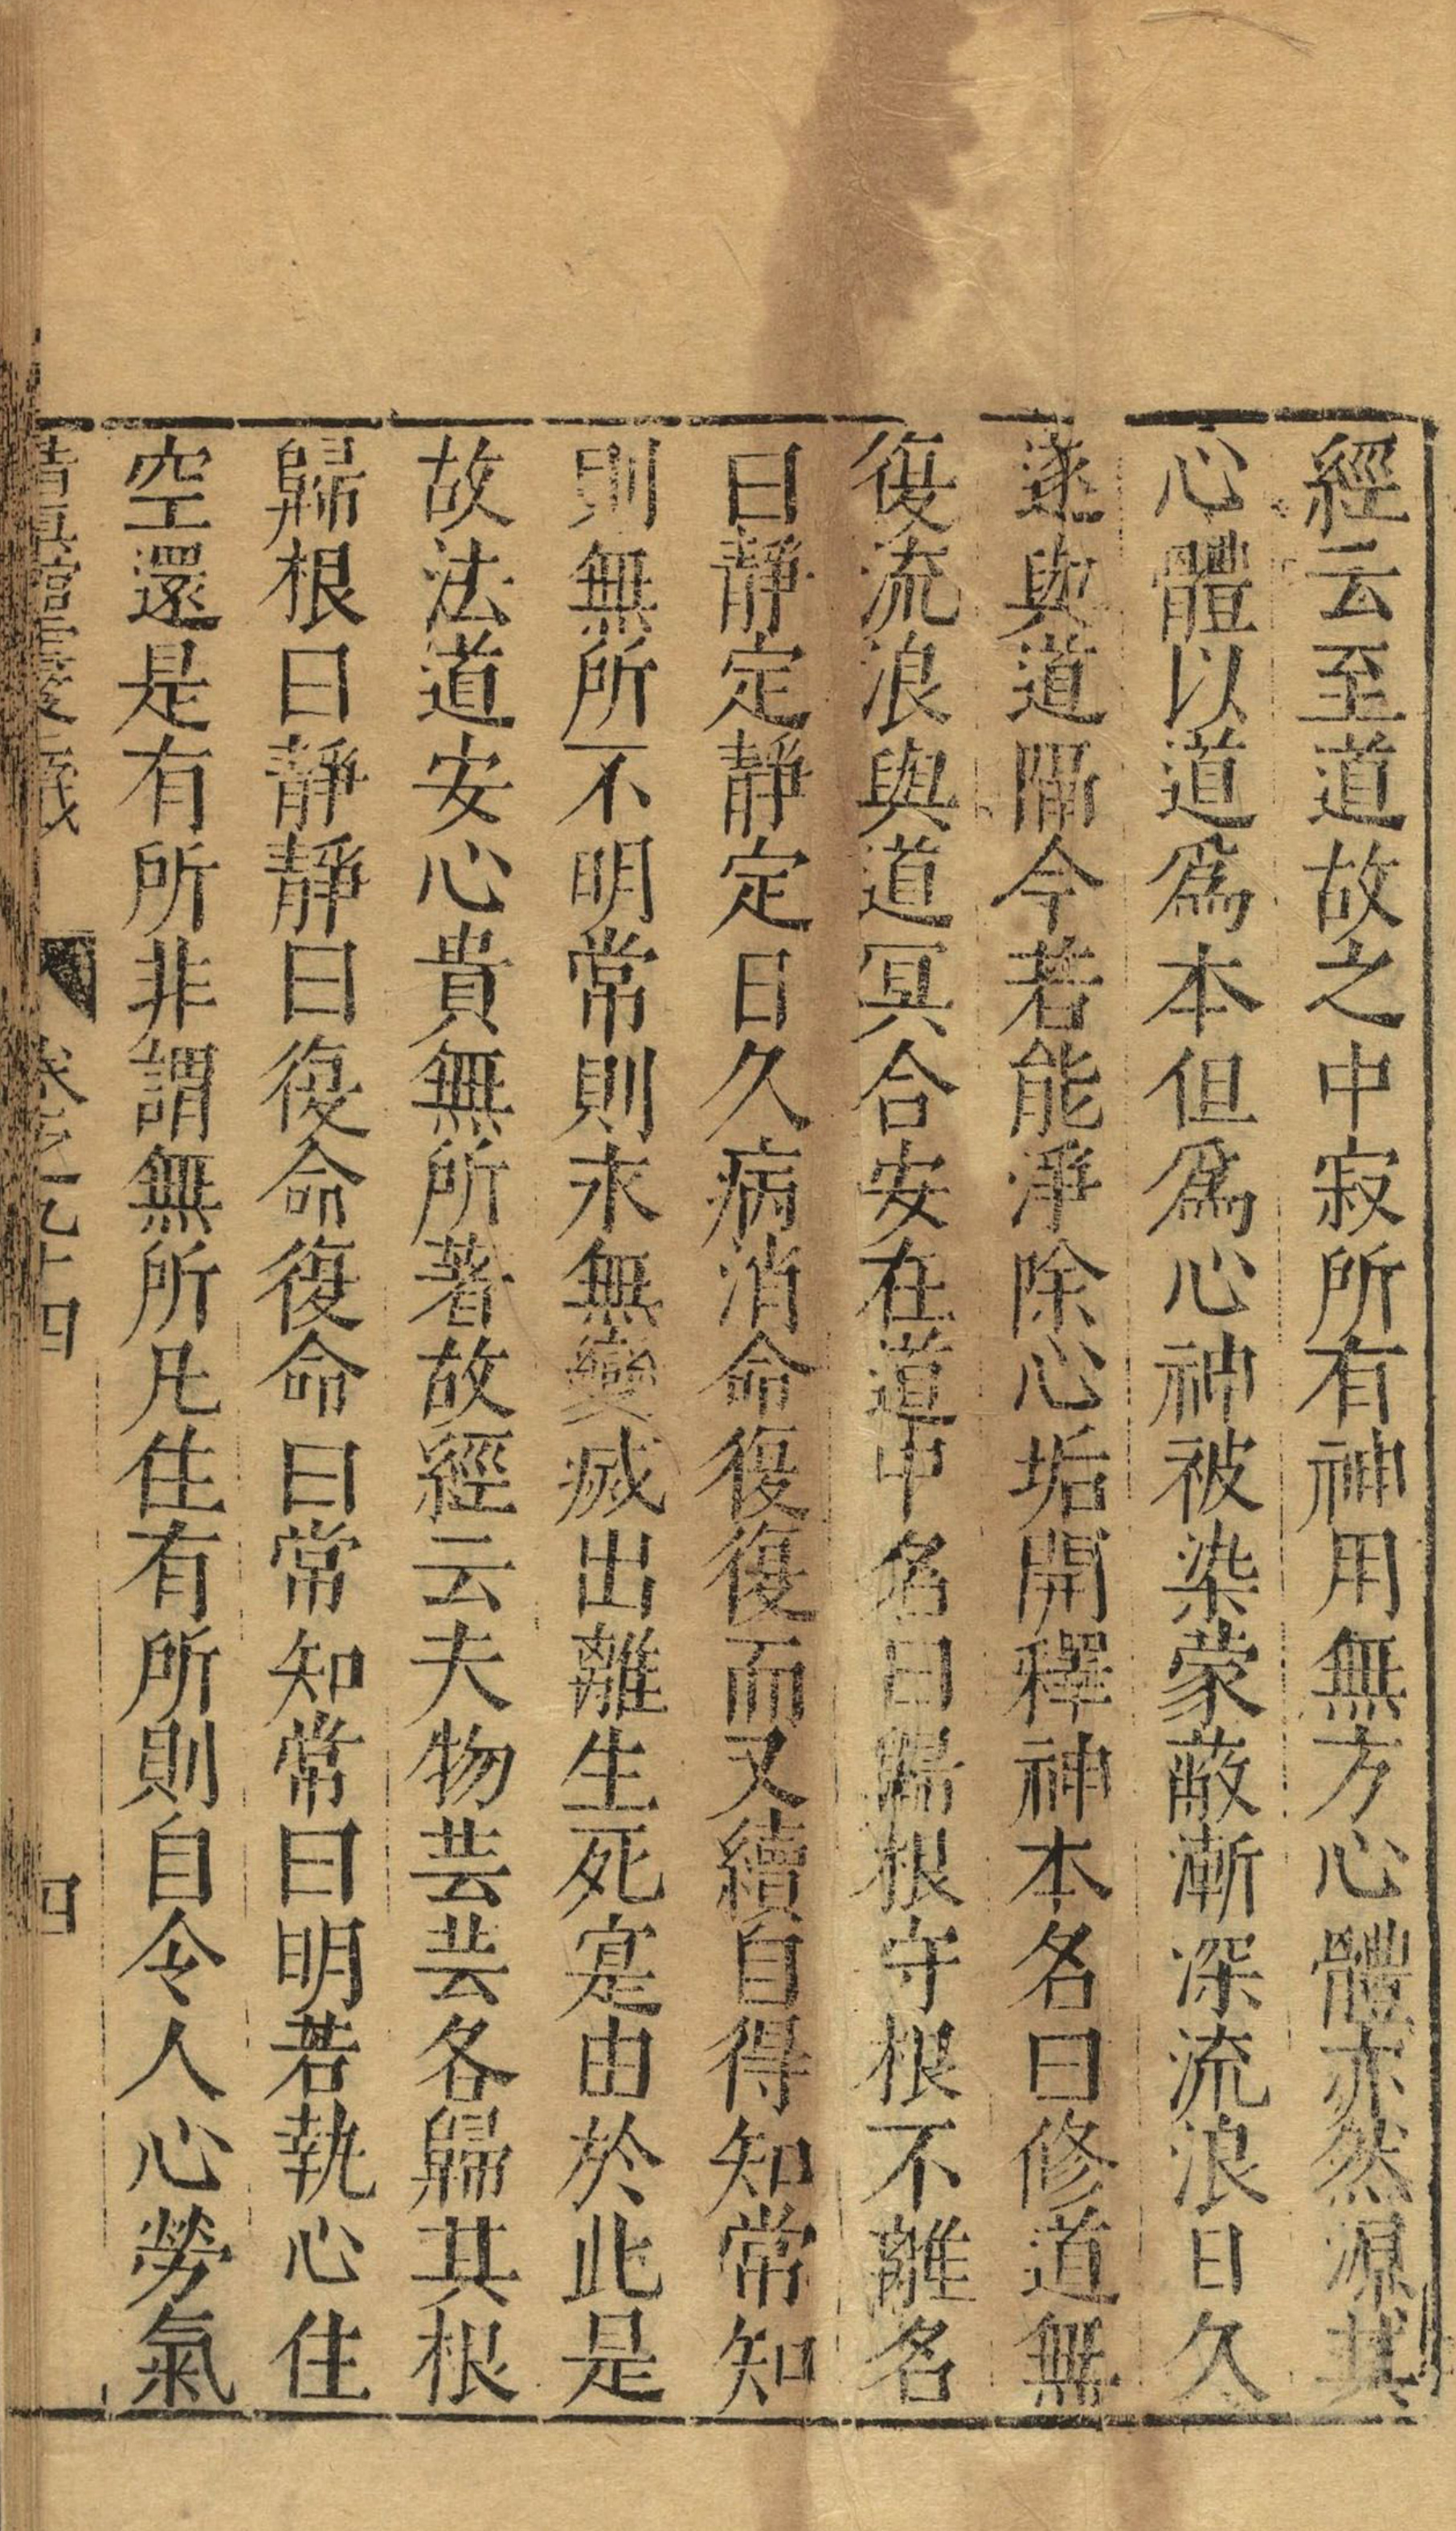 經云至道故之中寂所有神用無方心體亦然源其
心體以道爲本但爲心神被染蒙蔽漸深流浪日久
遂與道隔今若能淨除心垢開釋神本名曰修道無
復流浪與道冥合安在道中名曰歸根守根不離名
曰靜定靜定日久病消命復復而又續自得知常知
則無所不明常則永無變滅出離生死寔由於此是
故法道安心貴無所著故經云夫物芸芸各歸其根
歸根曰靜靜曰復命復命曰常知常曰明若執心住
空還是有所非謂無所凡住有所則自令人心勞氣
四